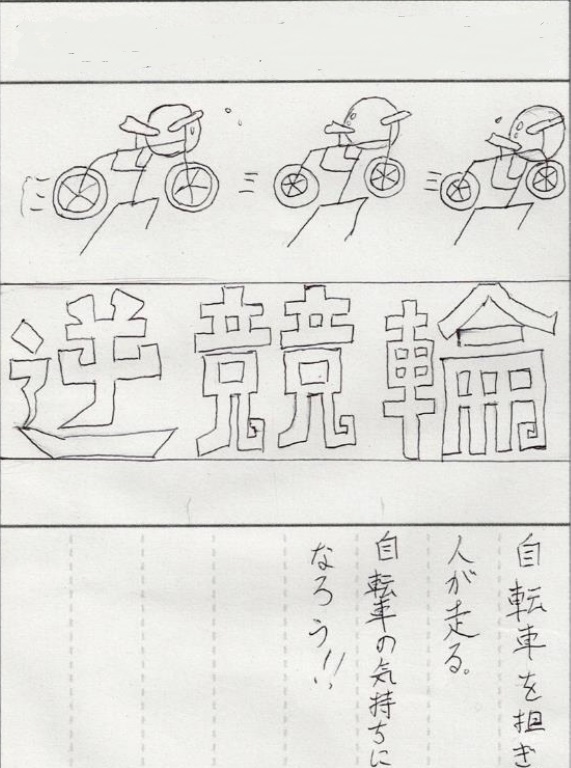 逆競輪
自転車を担ぎ
人が走る。
自転車の気持ちに
なろう!!